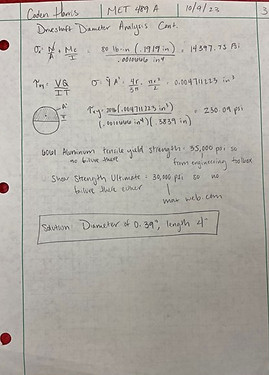 Caden Harris MET 489 A 10/9/23 3
Driveshaft Diameter Analysis Cont.
σ = N/A + Mc/I = 80 lb·in (.1919 in) / .00106616 in⁴ = 14397.73 Psi
τxy = VQ/IT Q = ȳ A' = 4r/3π · πr²/2 = 0.004711223 in³
τxy = (.004711223 in³) / (.00106616 in⁴)(.3839 in) = 230.09 psi
6061 Aluminum tensile yield strength = 35,000 psi so
no failure there from engineering toolbox
Shear Strength Ultimate = 30,000 psi so no
failure there either
matweb.com
Solution Diameter of 0.39", length 4"